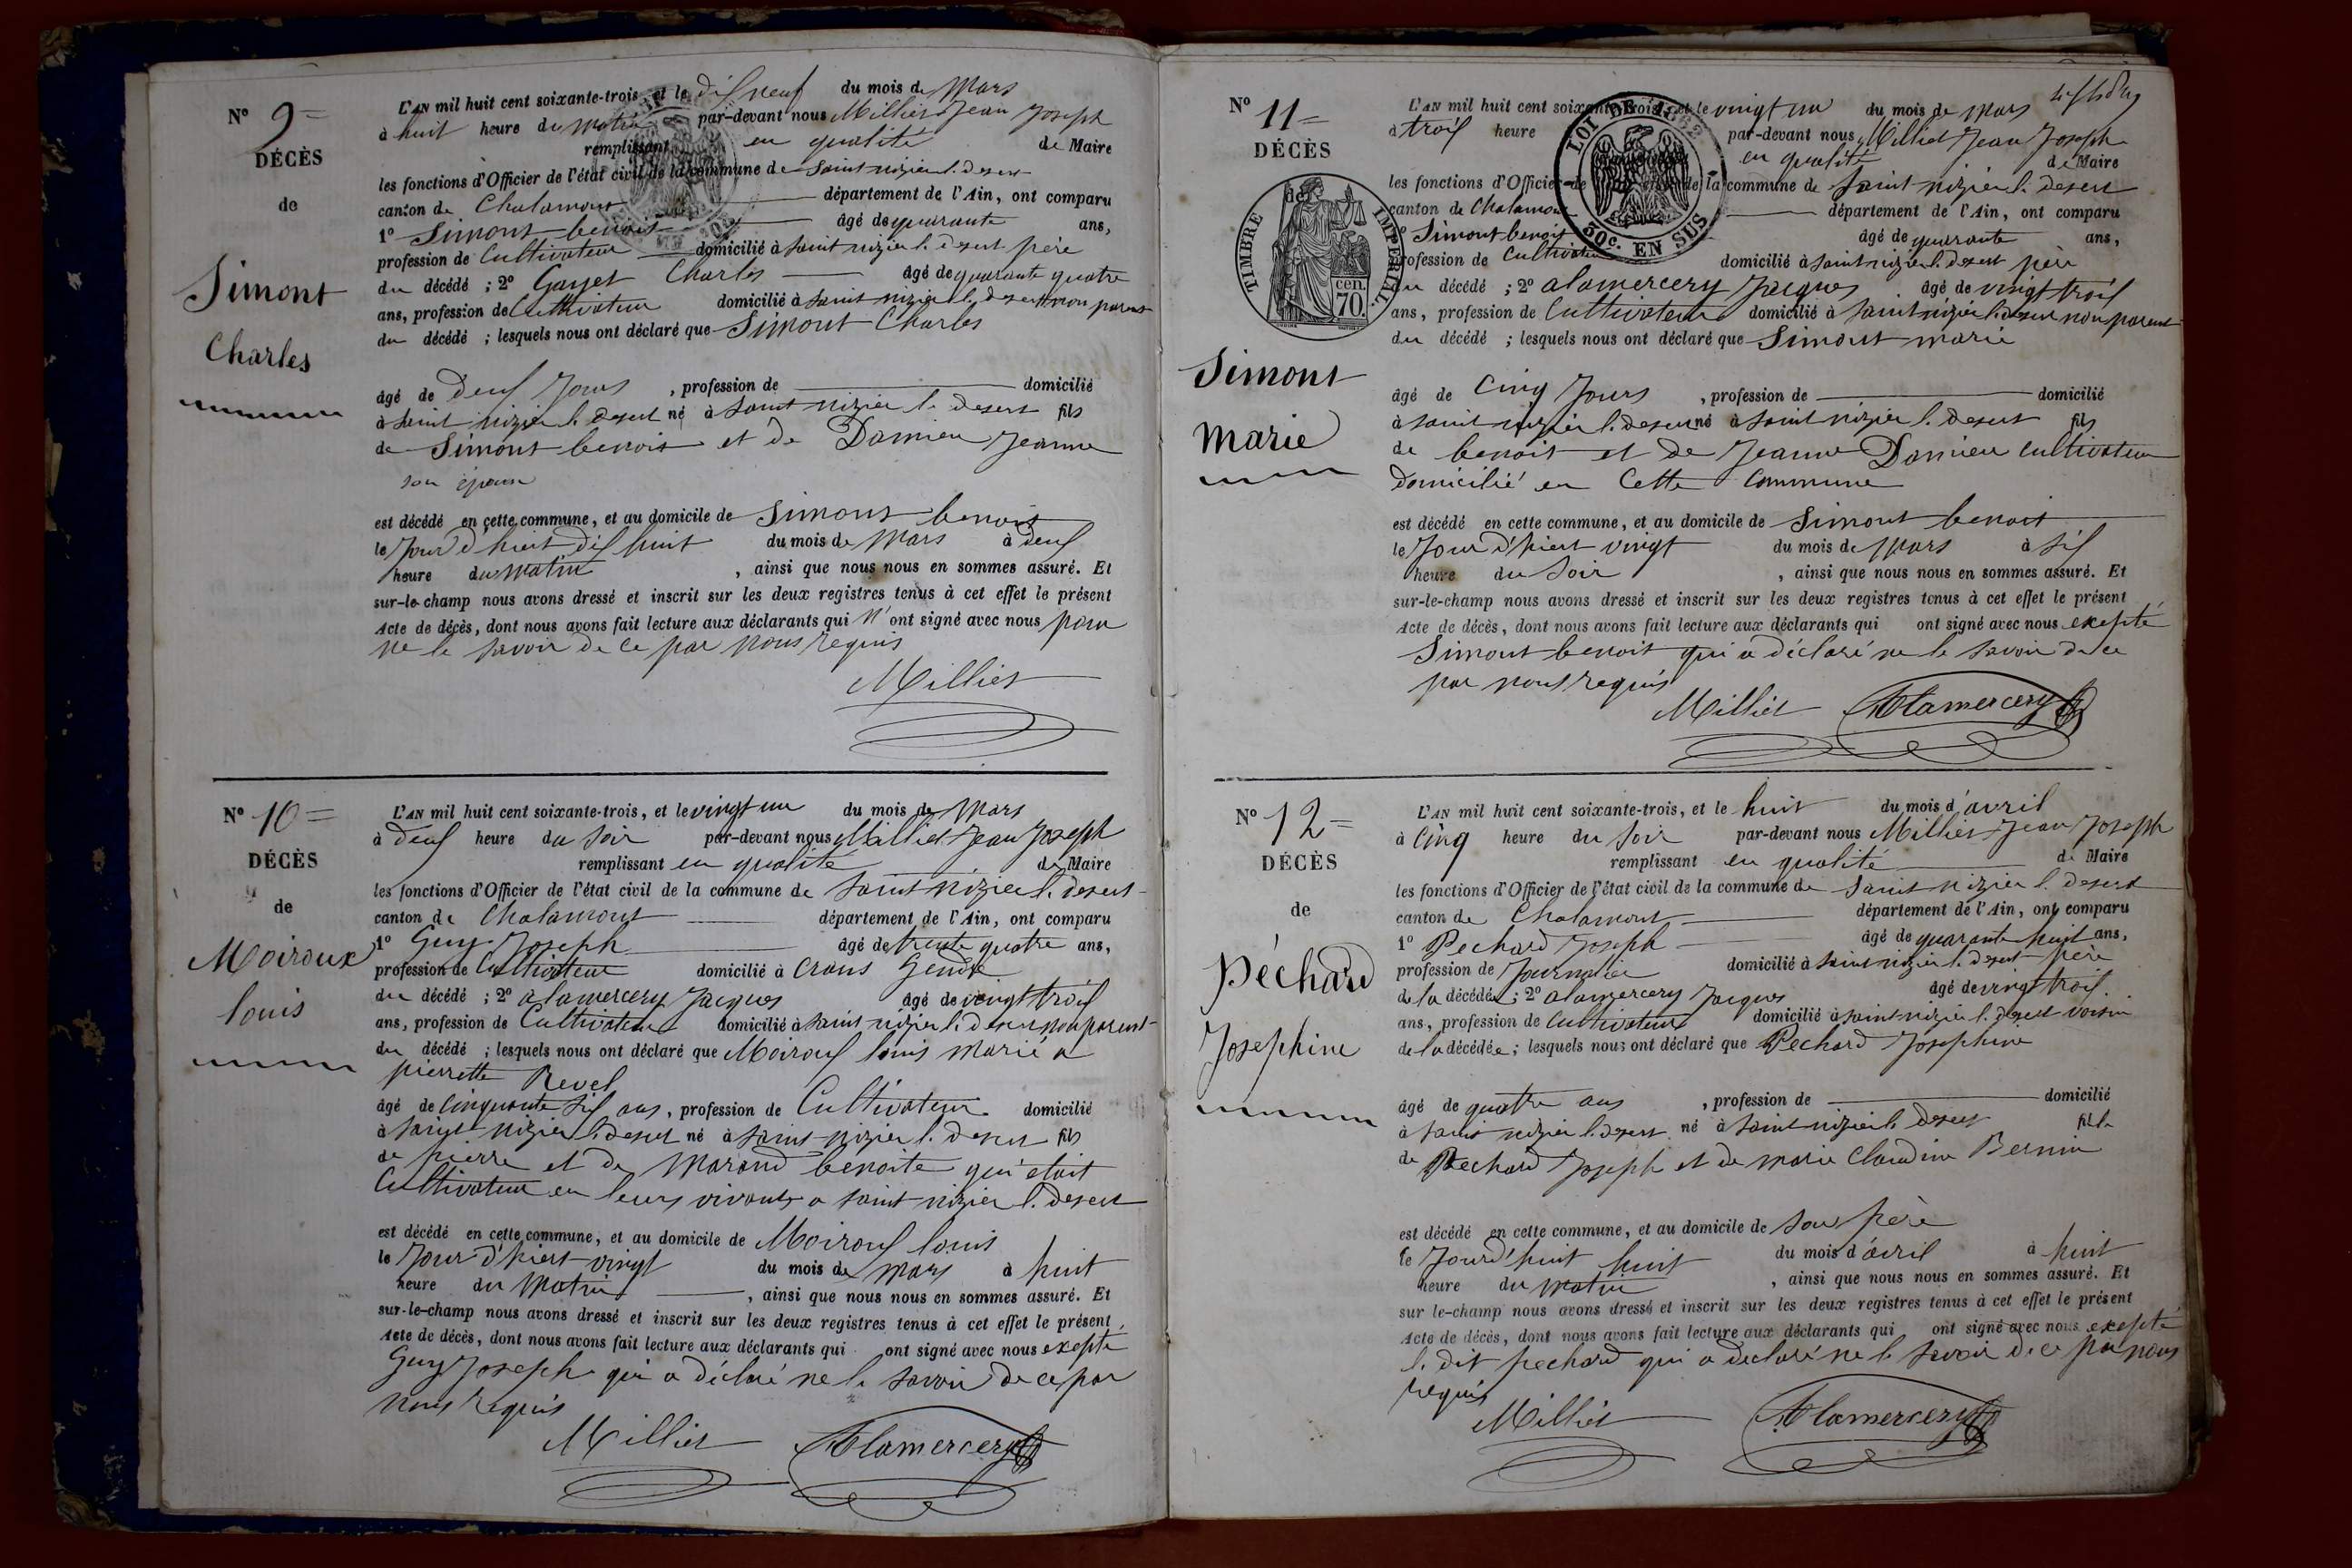 N° 9=
DÉCÈS
de
Simont
Charles
L'AN mil huit cent soixante-trois, et le dix neuf du mois de Mars
à huit heure du matin par-devant nous Milliet Jean Joseph
remplissant en qualité de Maire
les fonctions d'Officier de l'état civil de la commune de Saint nizier l. desert
canton de Chalamont département de l'Ain, ont comparu
1° Simont benoit âgé de quarante ans,
profession de Cultivateur domicilié à Saint nizier l. desert père
du décédé ; 2° Gayet Charles âgé de quarante quatre
ans, profession de Cultivateur domicilié à Saint nizier l. desert non parent
du décédé ; lesquels nous ont déclaré que Simont Charles
âgé de deux Jours , profession de domicilié
à Saint nizier l. desert né à Saint nizier l. desert fils
de Simont benoit et de Damien Jeanne
son épouse
est décédé en cette commune, et au domicile de Simont benoit
le Jour d'hiert dix huit du mois de Mars à deux
heure du matin , ainsi que nous nous en sommes assuré. Et
sur-le-champ nous avons dressé et inscrit sur les deux registres tenus à cet effet le présent
Acte de décès, dont nous avons fait lecture aux déclarants qui n' ont signé avec nous pour
ne le savoir de ce par nous requis
Milliet
N° 10=
DÉCÈS
de
Moiroux
louis
L'AN mil huit cent soixante-trois, et le vingt un du mois de Mars
à deux heure du Soir par-devant nous Milliet Jean Joseph
remplissant en qualité de Maire
les fonctions d'Officier de l'état civil de la commune de Saint nizier l. desert
canton de Chalamont département de l'Ain, ont comparu
1° Guy Joseph âgé de trente quatre ans,
profession de Cultivateur domicilié à Crans Gendre
du décédé ; 2° alamercery Jacques âgé de vingt trois
ans, profession de Cultivateur domicilié à Saint nizier l. desert non parent
du décédé ; lesquels nous ont déclaré que Moiroux louis marié a
pierrette Revel
âgé de Cinquante Six ans , profession de Cultivateur domicilié
à Saint nizier l. desert né à Saint nizier l. desert fils
de pierre et de Morand benoite qui etait
Cultivateur en leurs vivants a Saint nizier l. desert
est décédé en cette commune, et au domicile de Moiroux louis
le Jour d'hiert vingt du mois de Mars à huit
heure du matin , ainsi que nous nous en sommes assuré. Et
sur-le-champ nous avons dressé et inscrit sur les deux registres tenus à cet effet le présent
Acte de décès, dont nous avons fait lecture aux déclarants qui ont signé avec nous exepté
Guy Joseph qui a déclaré ne le savoir de ce par
nous requis
Milliet Alamercery
N° 11=
DÉCÈS
de
TIMBRE IMPERIAL
70. cen.
Simont
marie
LOI DE 1862
30c. EN SUS
L'AN mil huit cent soixante-trois, et le vingt un du mois de Mars
à trois heure par-devant nous Milliet Jean Joseph
en qualité de Maire
les fonctions d'Officier de de la commune de Saint nizier l. desert
canton de Chalamont département de l'Ain, ont comparu
1° Simont benoit âgé de quarante ans,
profession de Cultivateur domicilié à Saint nizier l. desert père
du décédé ; 2° alamercery Jacques âgé de vingt trois
ans, profession de Cultivateur domicilié à Saint nizier l. desert non parent
du décédé ; lesquels nous ont déclaré que Simont marie
âgé de Cinq Jours , profession de domicilié
à Saint nizier l. desert né à Saint nizier l. desert fils
de benoit et de Jeanne Damien Cultivateur
domicilié en Cette Commune
est décédé en cette commune, et au domicile de Simont benoit
le Jour d'hiert vingt du mois de Mars à Six
heure du Soir , ainsi que nous nous en sommes assuré. Et
sur-le-champ nous avons dressé et inscrit sur les deux registres tenus à cet effet le présent
Acte de décès, dont nous avons fait lecture aux déclarants qui ont signé avec nous exepté
Simont benoit qui a déclaré ne le savoir de ce
par nous requis
Milliet Alamercery
N° 12=
DÉCÈS
de
Péchard
Josephine
L'AN mil huit cent soixante-trois, et le huit du mois d'avril
à Cinq heure du Soir par-devant nous Milliet Jean Joseph
remplissant en qualité de Maire
les fonctions d'Officier de l'état civil de la commune de Saint nizier l. desert
canton de Chalamont département de l'Ain, ont comparu
1° Pechard Joseph âgé de quarante huit ans,
profession de Journalier domicilié à Saint nizier l. desert père
de la décédée ; 2° alamercery Jacques âgé de vingt trois
ans, profession de Cultivateur domicilié à Saint nizier l. desert voisin
de la décédée ; lesquels nous ont déclaré que Pechard Josephine
âgé de quatre ans , profession de domicilié
à Saint nizier l. desert né à Saint nizier l. desert fille
de Pechard Joseph et de marie Claudine Bernin
est décédé en cette commune, et au domicile de Son père
le Jourd'huit huit du mois d'avril à huit
heure du matin , ainsi que nous nous en sommes assuré. Et
sur le-champ nous avons dressé et inscrit sur les deux registres tenus à cet effet le présent
Acte de décès, dont nous avons fait lecture aux déclarants qui ont signé avec nous exepté
le dit pechard qui a declaré ne le savoir de ce par nous
requis
Milliet Alamercery